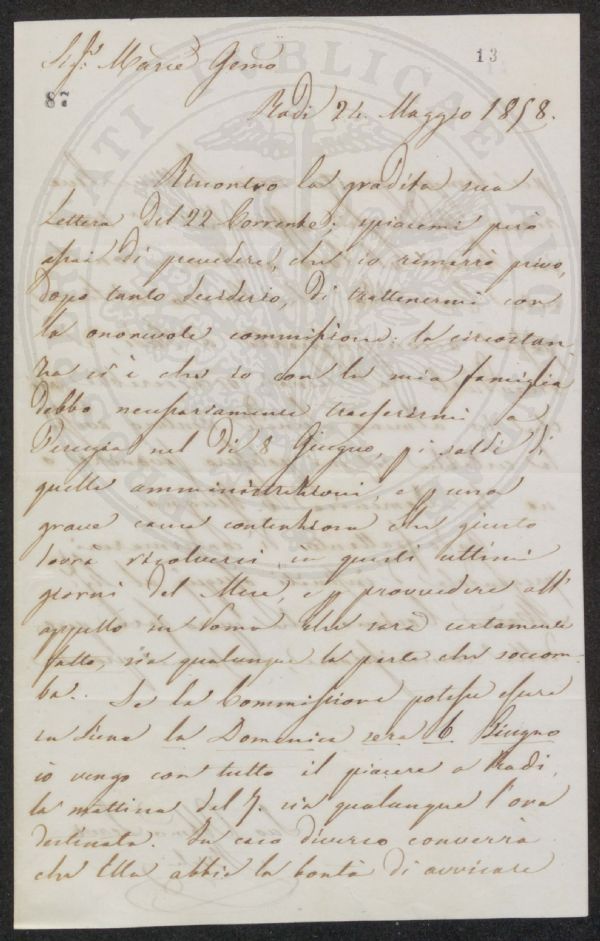 Sigr. Marie Gomo
13
87
Radi 24. Maggio 1858.
Riscontro la gradita sua
Lettera del 22 Corrente: spiacemi però
assai di prevedere, che io rimarrò privo,
dopo tanto desiderio, di trattenermi con
la onorevole commissione: la circostan-
za è che io con la mia famiglia
debbo necessariamente trasferirmi a
Perugia nel dì 8 Giugno, pi saldi di
quelle amministrazioni, e p una
grave causa contenziosa che giusto
dovrà risolversi in questi ultimi
giorni del Mese, e p provvedere all'
appello in Roma che sarà certamente
fatto, sia qualunque la parte che soccom-
ba. Se la Commissione potesse essere
in Siena la Domenica sera 6 Giugno
io vengo con tutto il piacere a Radi,
la mattina del 7. sia qualunque l'ora
destinata. In caso diverso converrà
che Ella abbia la bontà di avvisare